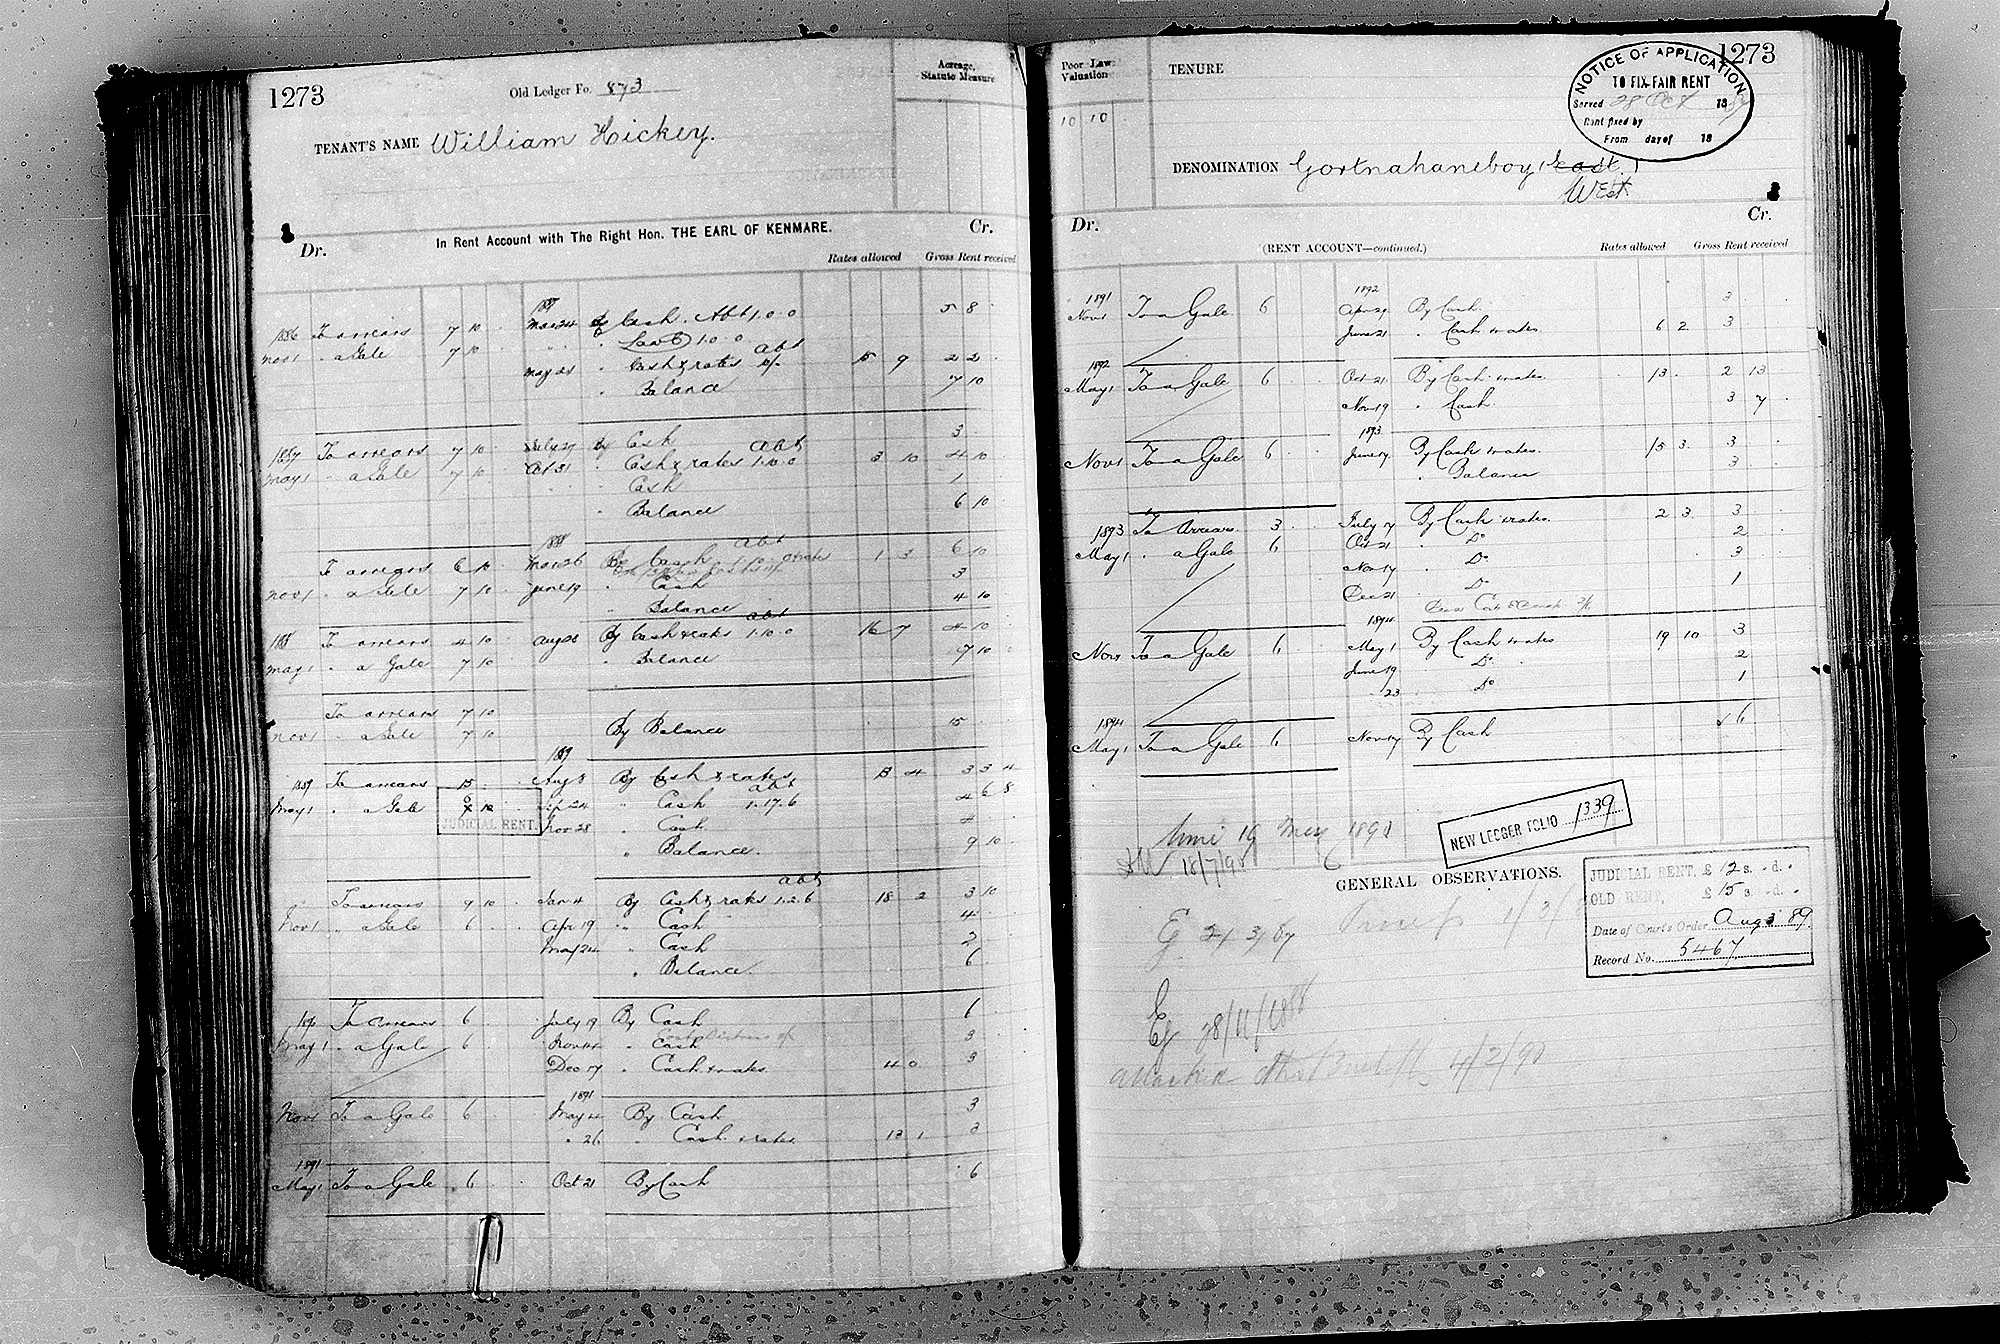 1273
Old Ledger Fo. 873
Acreage, Statute Measure
TENANT'S NAME William Hickey.
In Rent Account with The Right Hon. THE EARL OF KENMARE.
Dr. Cr.
Rates allowed Gross Rent received
1887
1886 To arrears 7 10 Mar 24 By Cash. Abt 1.0.0 5 8
Nov 1 " a Gale 7 10 " " 1.0.0
abt
May 21 " Cash & rates 15 9 2 2
" Balance 7 10
1887 To arrears 7 10 July 27 By Cash 3
abt
May 1 " a Gale 7 10 Oct 31 " Cash & rates 1.10.0 3 10 4 10
" Cash 1
" Balance 6 10
1888 abt
To arrears 6 10 Mar 26 By Cash 1.10. 1 3 6 10
Nov 1 " a Gale 7 10 June 19 " Cash 3
" Balance 4 10
abt
1888 To arrears 4 10 Aug 28 By Cash & rates 1.10.0 16 7 4 10
May 1 " a Gale 7 10 " Balance 7 10
To arrears 7 10
Nov 1 " a Gale 7 10 By Balance 15
1889
1889 To arrears 15 Aug 3 By Cash & rates 13 4 3 3 4
abt
May 1 " a Gale 6 Sep 24 " Cash 1.17.6 4 6 8
JUDICIAL RENT. Nov 28 " Cash 4
" Balance. 9 10
abt
To arrears 9 10 Jan 4 By Cash & rates 1.2.6 18 2 3 10
Nov 1 " a Gale 6 Apr 19 " Cash 4
May 24 " Cash 2
" Balance. 6
1890 To arrears 6 July 19 By Cash 6
May 1 " a Gale 6 Nov 14 " Cash 3
Dec 17 " Cash & rates 4 0 3
1891
Nov 1 To a Gale 6 May 22 By Cash 3
" 26 " Cash & rates 13 1 3
1891
May 1 To a Gale 6 Oct 21 By Cash 6
Poor Law Valuation
10 10
TENURE
1273
NOTICE OF APPLICATION
TO FIX FAIR RENT
Served 28 Oct 18
Rent fixed by
From day of 18
DENOMINATION Gortnahaneboy (East.)
West
Dr. Cr.
(RENT ACCOUNT—continued.)
Rates allowed Gross Rent received
1891 1892
Nov 1 To a Gale 6 Apr 29 By Cash 3
June 21 " Cash & rates 6 2 3
1892
May 1 To a Gale 6 Oct 21 By Cash & rates 13 2 13
Nov 19 " Cash 3 7
1893
Nov 1 To a Gale 6 June 17 By Cash & rates 15 3 3
" Balance 3
1893 To Arrears 3 July 7 By Cash & rates 2 3 3
May 1 " a Gale 6 Oct 21 " Do 2
Nov 17 " Do 3
Dec 21 " Do 1
1894
Nov 1 To a Gale 6 May 1 By Cash & rates 19 10 3
June 19 Do 2
" 23 Do 1
1894
May 1 To a Gale 6 Nov 17 By Cash 6
NEW LEDGER FOLIO 1339
19 May 1890
18/7/90
GENERAL OBSERVATIONS.
JUDICIAL RENT, £12 s. - d. -
OLD RENT, £15 s. - d. -
Date of Court's Order Aug 3 89.
Record No. 5467
Ej 21/3/87
Ej 28/11/1888
4/2/90